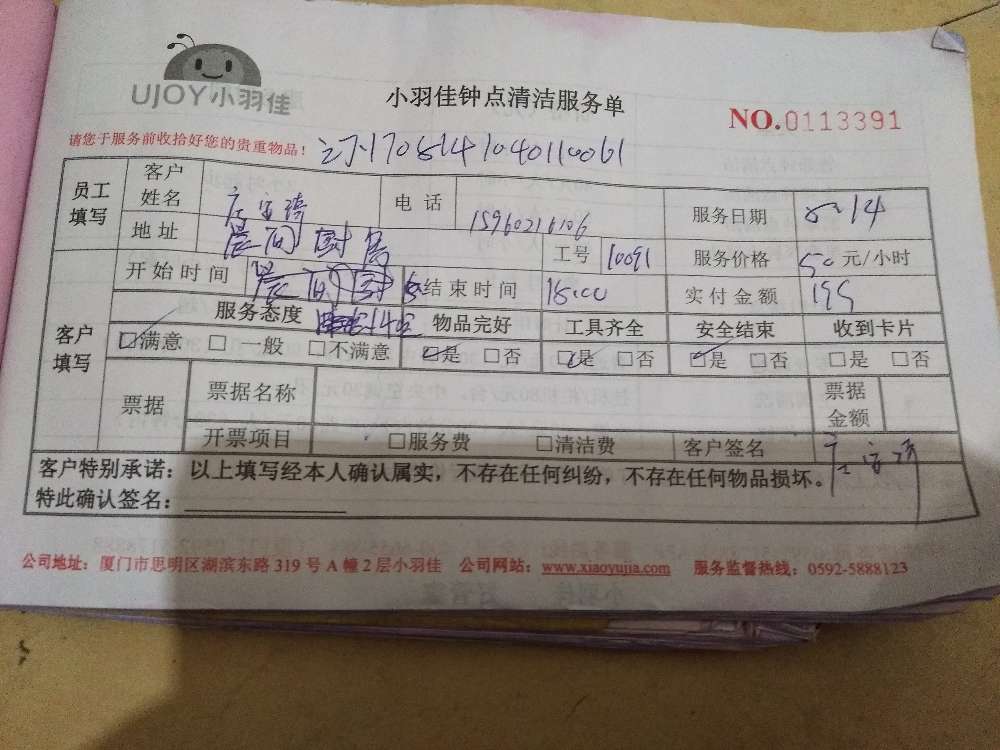 UJOY小羽佳
小羽佳钟点清洁服务单
NO.0113391
请您于服务前收拾好您的贵重物品！
1708141040110061
员工填写 客户姓名 电话 15960216106 服务日期 8-14
地址 晨 工号 10091 服务价格 50元/小时
开始时间 结束时间 18:00 实付金额 195
客户填写 服务态度 物品完好 工具齐全 安全结束 收到卡片
□满意 □一般 □不满意 □是 □否 □是 □否 □是 □否 □是 □否
票据 票据名称 票据金额
开票项目 □服务费 □清洁费 客户签名
客户特别承诺：以上填写经本人确认属实，不存在任何纠纷，不存在任何物品损坏。
特此确认签名：
公司地址：厦门市思明区湖滨东路319号A幢2层小羽佳 公司网站：www.xiaoyujia.com 服务监督热线：0592-5888123